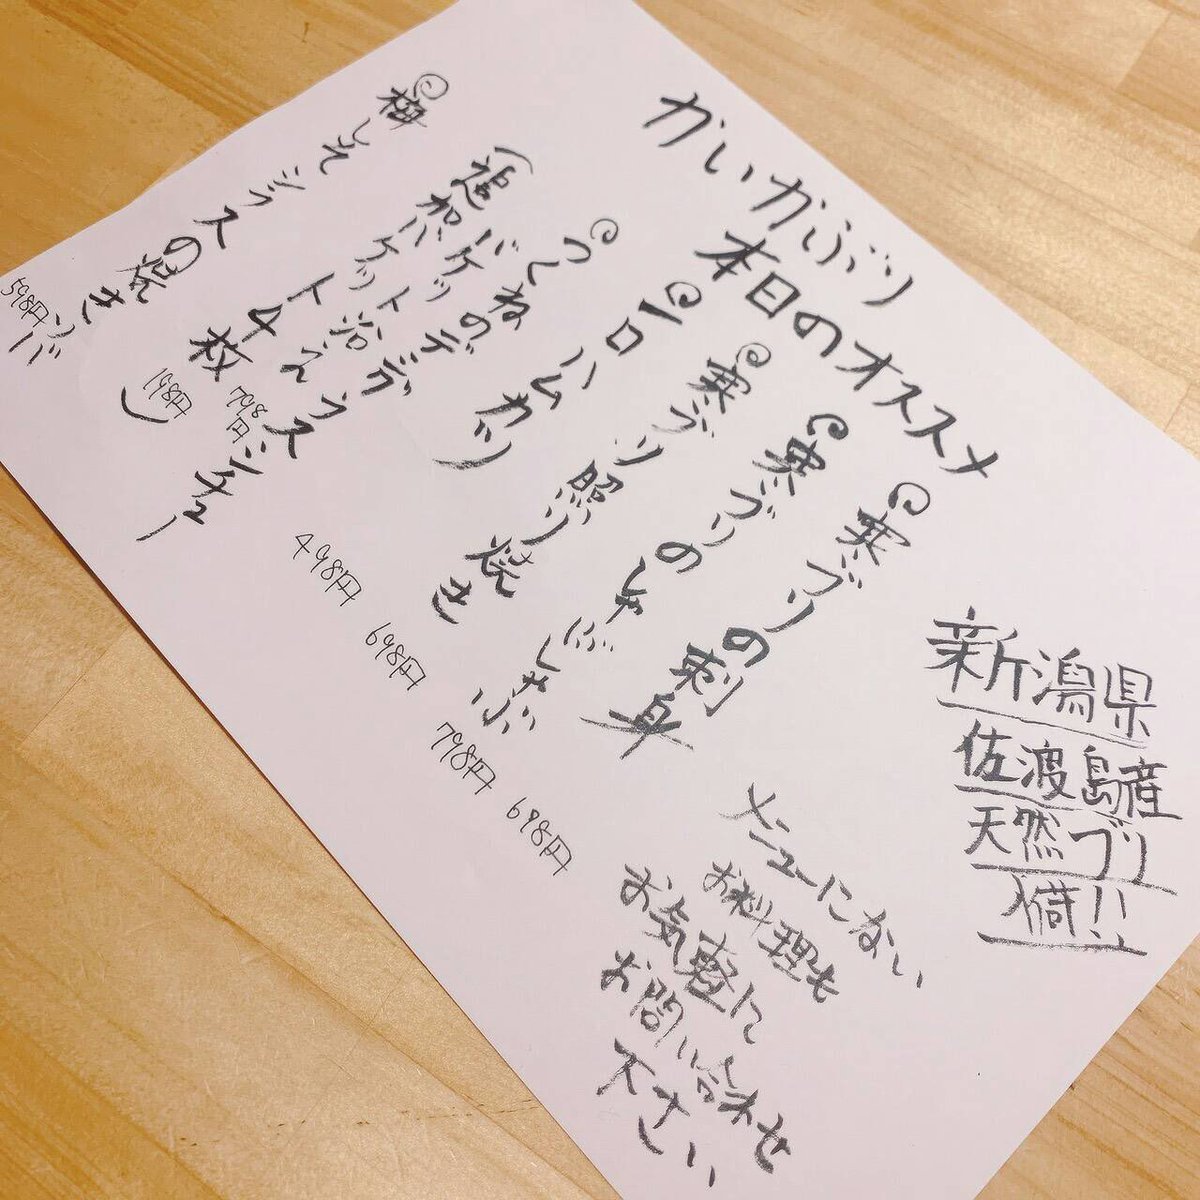 かいかぶり
本日のオススメ
新潟県
佐渡島産
天然ブリ
入荷!!
寒ブリの刺身 698円
寒ブリのしゃぶしゃぶ 798円
寒ブリ照り焼き 698円
一口ハムカツ 498円
つくねのデミグラスシチュー
バケット添え 798円
(追加バケット4枚 198円)
梅しそシラスの焼きソバ 598円
メニューにない
お料理も
お気軽に
お問い合わせ
下さい